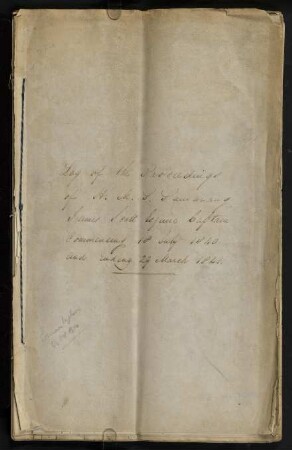 Log of the Proceedings
of H. M. S. Samarang
James Scott Esquire Captain
Commencing 18 July 1840
and ending 29 March 184